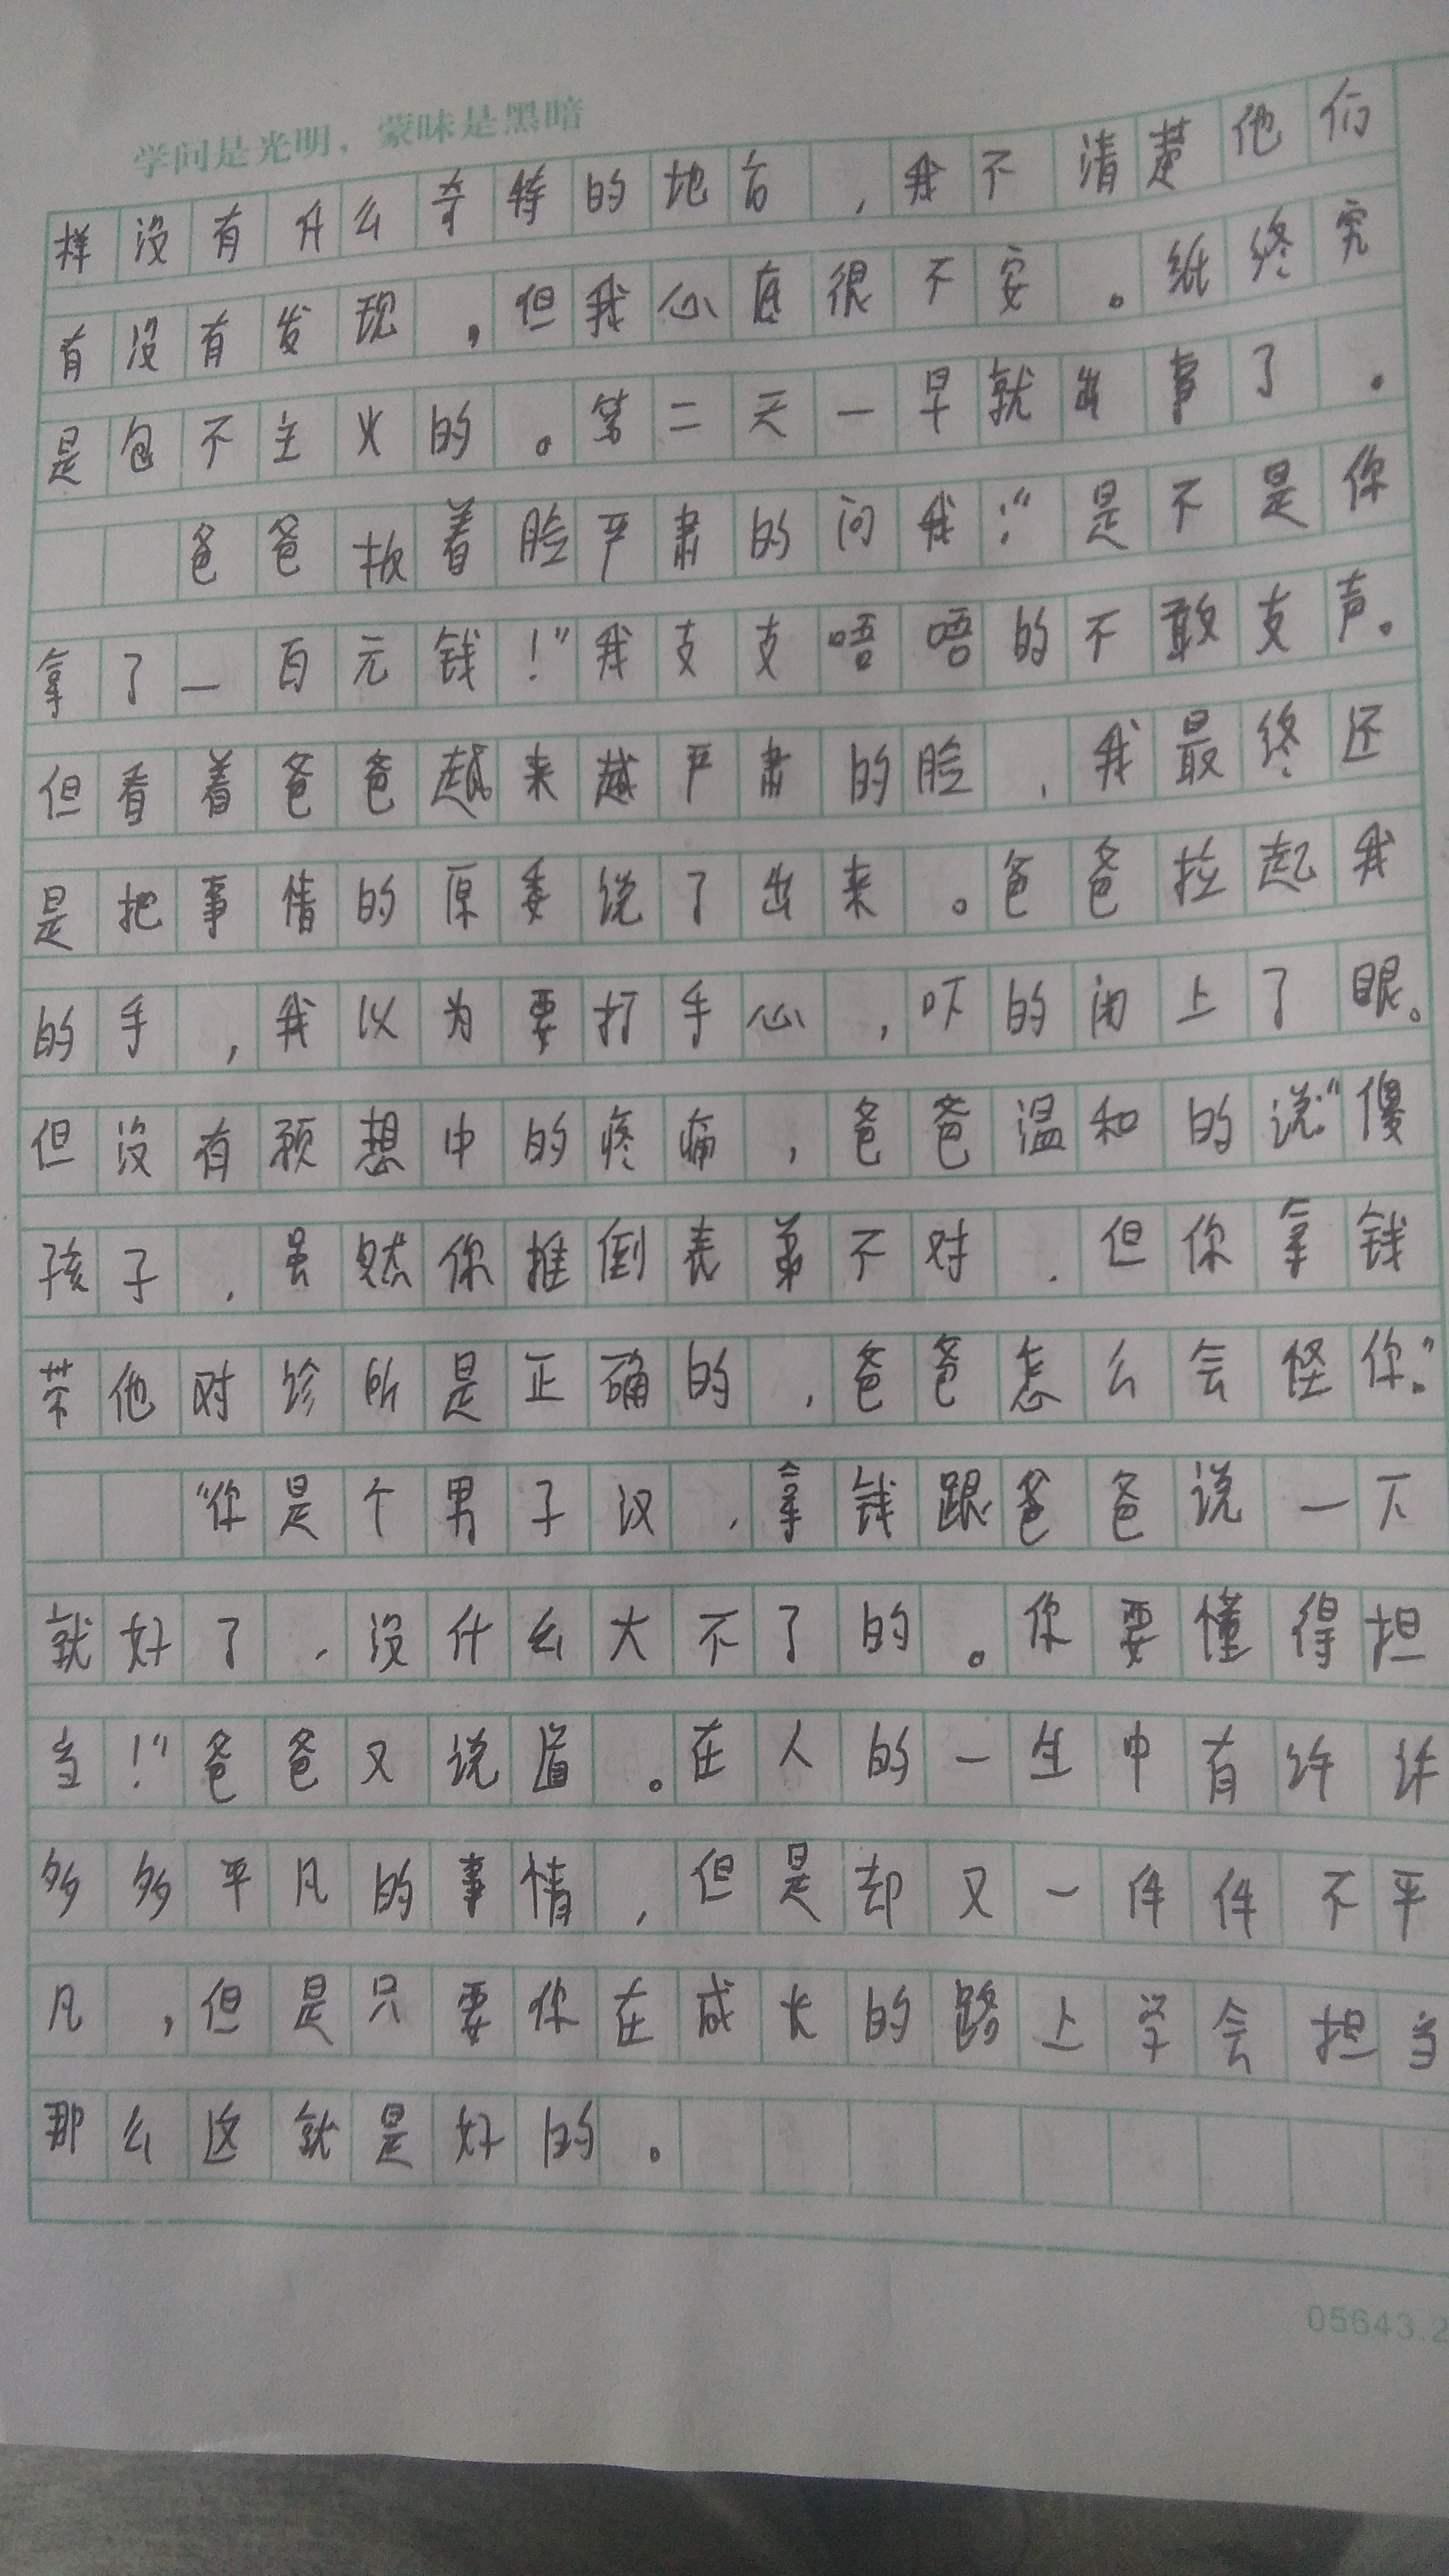 学问是光明，蒙昧是黑暗
样没有什么奇特的地方，我不清楚他们
有没有发现，但我心底很不安。纸终究
是包不主火的。第二天一早就出事了。
爸爸板着脸严肃的问我：“是不是你
拿了一百元钱！”我支支唔唔的不敢支声。
但看着爸爸越来越严肃的脸，我最终还
是把事情的原委说了出来。爸爸拉起我
的手，我以为要打手心，吓的闭上了眼。
但没有预想中的疼痛，爸爸温和的说“傻
孩子，虽然你推倒表弟不对，但你拿钱
带他对诊所是正确的，爸爸怎么会怪你。”
“你是个男子汉，拿钱跟爸爸说一下
就好了，没什么大不了的。你要懂得担
当！”爸爸又说道。在人的一生中有许许
多多平凡的事情，但是却又一件件不平
凡，但是只要你在成长的路上学会担当
那么这就是好的。
05643.2